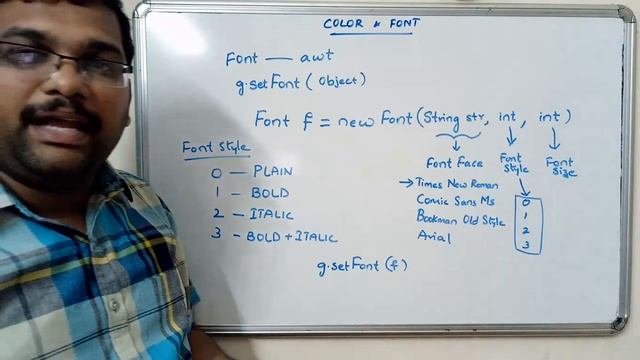 COLOR & FONT
Font — awt
g.setFont( Object)
Font f = new Font(String str, int, int)
Font Style
0 — PLAIN
1 — BOLD
2 — ITALIC
3 — BOLD + ITALIC
Font Face
→ Times New Roman
Comic Sans Ms
Bookman Old Style
Arial
Font Style
0
1
2
3
Font Size
g.setFont (f)